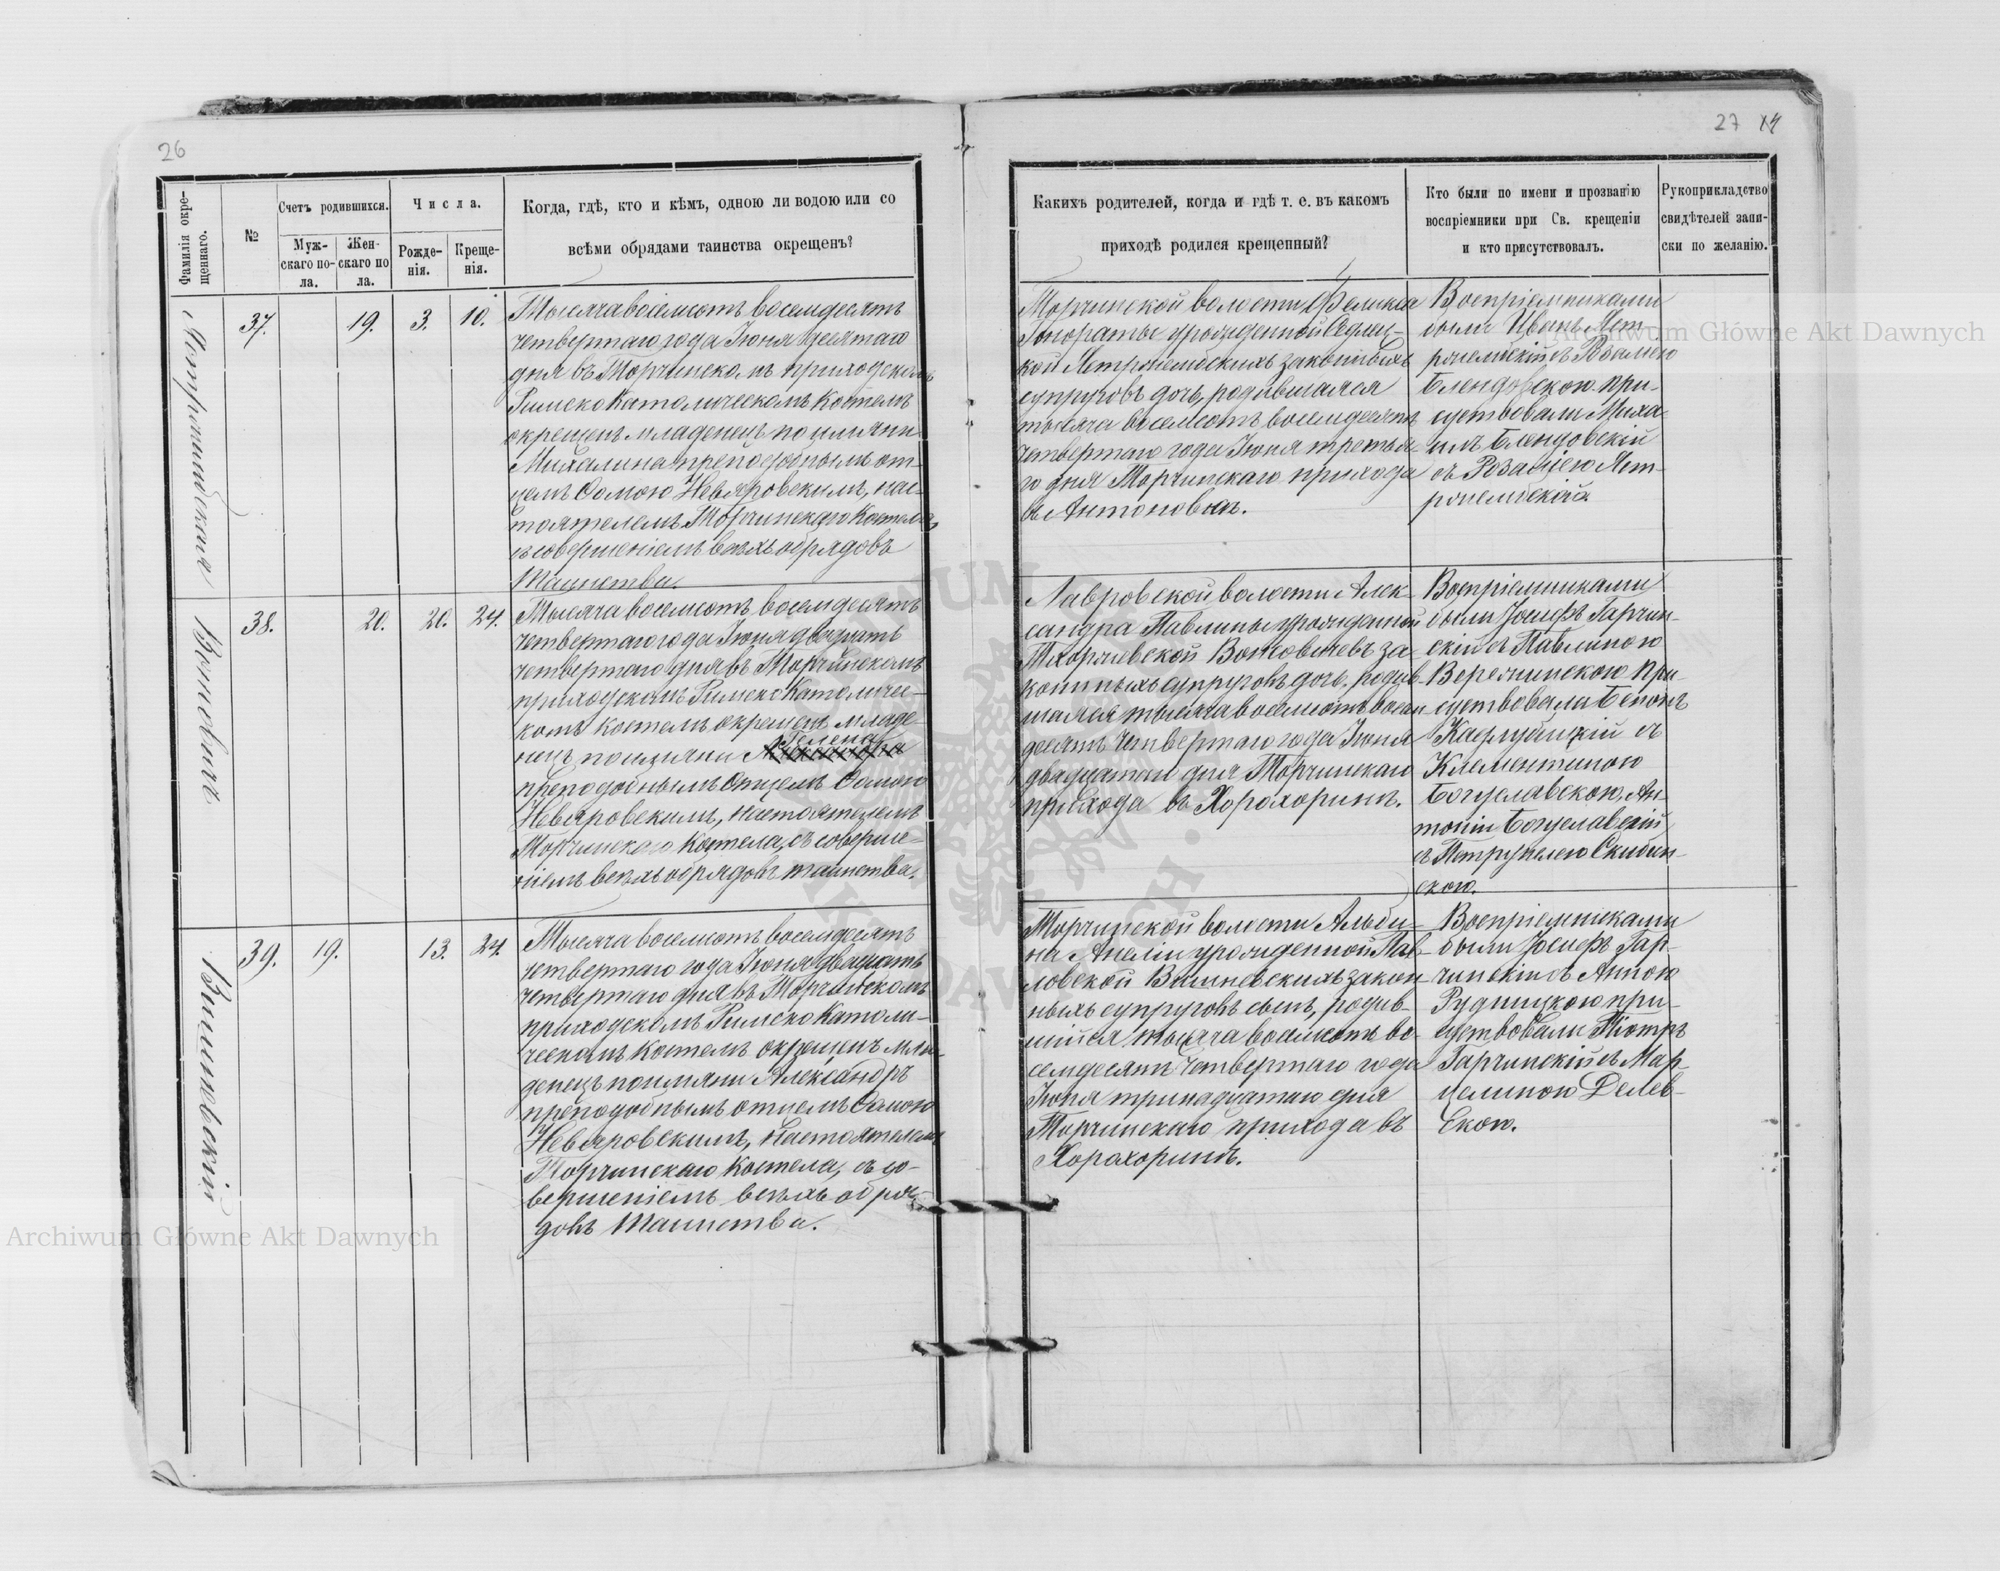 26
27 14
Фамилія окре-
щеннаго.
№
Счетъ родившихся.
Муж-
скаго по-
ла.
Жен-
скаго по
ла.
Числа.
Рожде-
нія.
Креще-
нія.
Когда, гдѣ, кто и кѣмъ, одною ли водою или со
всѣми обрядами таинства окрещенъ?
Какихъ родителей, когда и гдѣ т. е. въ какомъ
приходѣ родился крещенный?
Кто были по имени и прозванію
воспріемники при Св. крещеніи
и кто присутствовалъ.
Рукоприкладство
свидѣтелей запи-
ски по желанію.
37.
19.
3.
10.
Тысяча восемсотъ восемдесятъ
четвертаго года Іюня десятаго
дня въ Торчинскомъ приходскомъ
Римско Католическомъ Костелѣ
окрещенъ младенецъ по имени
Михалина преподобнымъ от-
цемъ Ѳомою Невяровскимъ, нас-
тоятелемъ Торчинскаго Костела,
съ совершеніемъ всѣхъ обрядовъ
Таинства.
Торчинской волости Феликса
Гонораты урожденной Седлец-
кой Ястржембскихъ законныхъ
супруговъ дочь, родившаяся
тысяча восемсотъ восемдесятъ
четвертаго года Іюня третья-
го дня Торчинскаго прихода
въ Антоновкѣ.
Воспріемниками
были Иванъ Яст-
ржембскій съ
Блендовскою при-
суствовали Миха-
илъ Блендовскій
съ Розаліею Яст-
ржембской
38.
20.
20.
24.
Войтовичъ
Тысяча восемсотъ восемдесятъ
четвертаго года Іюня двадцать
четвертаго дня въ Торчинскомъ
приходскомъ Римско Католичес-
комъ костелѣ окрещенъ младе-
нецъ по имени Гелена
преподобнымъ Отцемъ Ѳомою
Невяровскимъ, настоятелемъ
Торчинскаго Костела, съ соверше-
ніемъ всѣхъ обрядовъ таинства.
Лавровской волости Алек-
сандра Павлины урожденной
Войтовичевъ за-
конныхъ супруговъ дочь, родив-
шаяся тысяча восемсотъ восем-
десятъ четвертаго года Іюня
двадцатаго дня Торчинскаго
прихода въ Хорохоринѣ.
Воспріемниками
были Іосифъ Гарчин-
скій съ Павлиною
Веречинскою при-
суствовали
съ
Клементиною
Богуславскою, Ан-
тоній Богуславскій
съ Петрунелею Скибин-
скою.
39.
19.
13.
24.
Вишневскій
Тысяча восемсотъ восемдесятъ
четвертаго года Іюня двадцать
четвертаго дня въ Торчинскомъ
приходскомъ Римско Католи-
ческомъ Костелѣ окрещенъ мла-
денецъ по имени Александръ
преподобнымъ отцемъ Ѳомою
Невяровскимъ, Настоятелемъ
Торчинскаго Костела, съ со-
вершеніемъ всѣхъ обря-
довъ Таинства.
Торчинской волости Альби-
на Анеліи урожденной Пав-
ловской Вишневскихъ закон-
ныхъ супруговъ сынъ, родив-
шійся тысяча восемсотъ во-
семдесятъ четвертаго года
Іюня тринадцатаго дня
Торчинскаго прихода въ
Хорохоринѣ.
Воспріемниками
были Іосифъ Гар-
чинскій съ Анною
Рудницкою при-
суствовали Піотръ
Гарчинскій съ Мар-
целиною Делев-
скою.
Archiwum Główne Akt Dawnych
Archiwum Główne Akt Dawnych